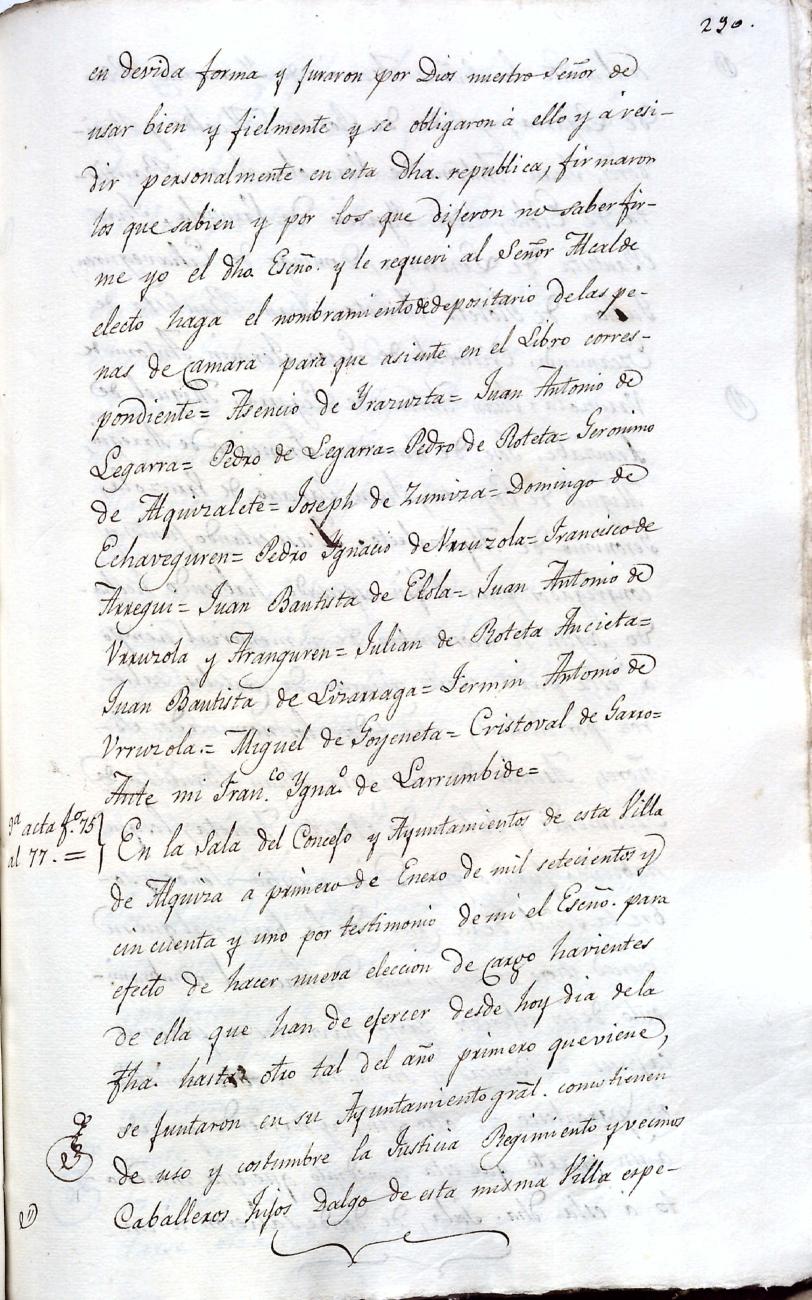 290.
en devida forma y juraron por Dios nuestro Señor de
usar bien y fielmente y se obligaron à ello y à resi-
dir personalmente en esta dha. republica, firmaron
los que sabien y por los que dijeron no saber fir-
me yo el dho. Escño. y le requeri al Señor Alcalde
electo haga el nombramiento de depositario de las pe-
nas de camara para que asiente en el Libro corres-
pondiente= Asencio de Yrazuzta= Juan Antonio de
Legarra= Pedro de Legarra= Pedro de Roteta= Geronimo
de Alquizalete= Joseph de Zumiza= Domingo de
Echaveguren= Pedro Ygnacio de Vrruzola= Francisco de
Arregui= Juan Bautista de Elola= Juan Antonio de
Vrruzola y Aranguren= Julian de Roteta Ancieta=
Juan Bautista de Lizarraga= Fermin Antonio de
Vrruzola.= Miguel de Goyeneta= Cristoval de Garro=
Ante mi Fran.co Ygna.o de Larrumbide=
9a acta fo. 75
al 77. =
En la Sala del Concejo y Ayuntamientos de esta Villa
de Alquiza à primero de Enero de mil setecientos y
cincuenta y uno por testimonio de mi el Escño. para
efecto de hacer nueva eleccion de cargo havientes
de ella que han de ejercer desde hoy dia de la
fha. hasta otro tal del año primero que viene,
se juntaron en su Ayuntamiento gral. como tienen
de uso y costumbre la Justicia Regimiento y vecinos
Caballeros hijos Dalgo de esta misma Villa espe-